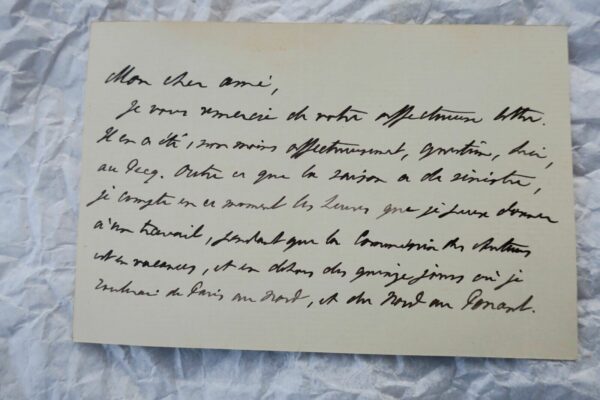 Mon cher ami,
Je vous remercie de votre affectueuse lettre.
Il en a été, non moins affectueusement, question, hier,
au Pecq. Outre ce que la saison a de sinistre,
je compte en ce moment les heures que je puis donner
à mon travail, pendant que la Commission des
est en vacances, et en dehors des quinze jours où je
de Paris au Nord, et du Nord au Ponant.